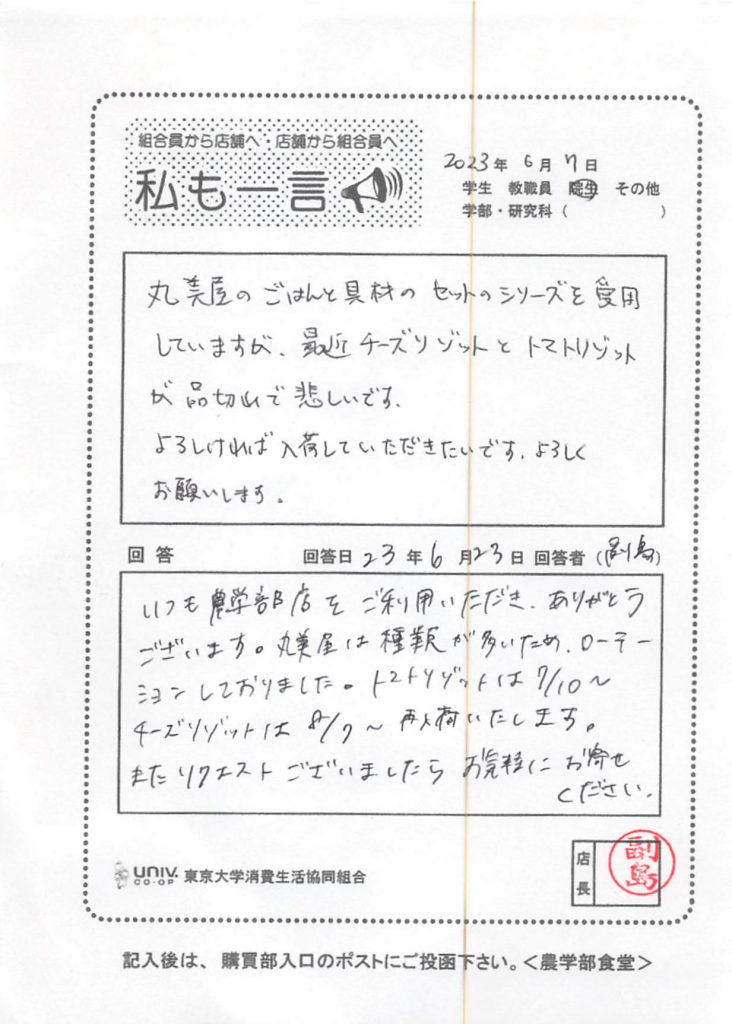 組合員から店舗へ・店舗から組合員へ
私も一言
2023年 6月 7日
学生 教職員 院生 その他
学部・研究科( )
丸美屋のごはんと具材のセットのシリーズを愛用
していますが、最近チーズリゾットとトマトリゾット
が品切れで悲しいです。
よろしければ入荷していただきたいです。よろしく
お願いします。
回答 回答日 23年 6月23日 回答者(副島)
いつも農学部店をご利用いただき、ありがとう
ございます。丸美屋は種類が多いため、ローテー
ションしておりました。トマトリゾットは7/10〜
チーズリゾットは8/7〜再入荷いたします。
またリクエストございましたらお気軽にお寄せ
ください。
UNIV. CO-OP 東京大学消費生活協同組合
店長 副島
記入後は、購買部入口のポストにご投函下さい。<農学部食堂>